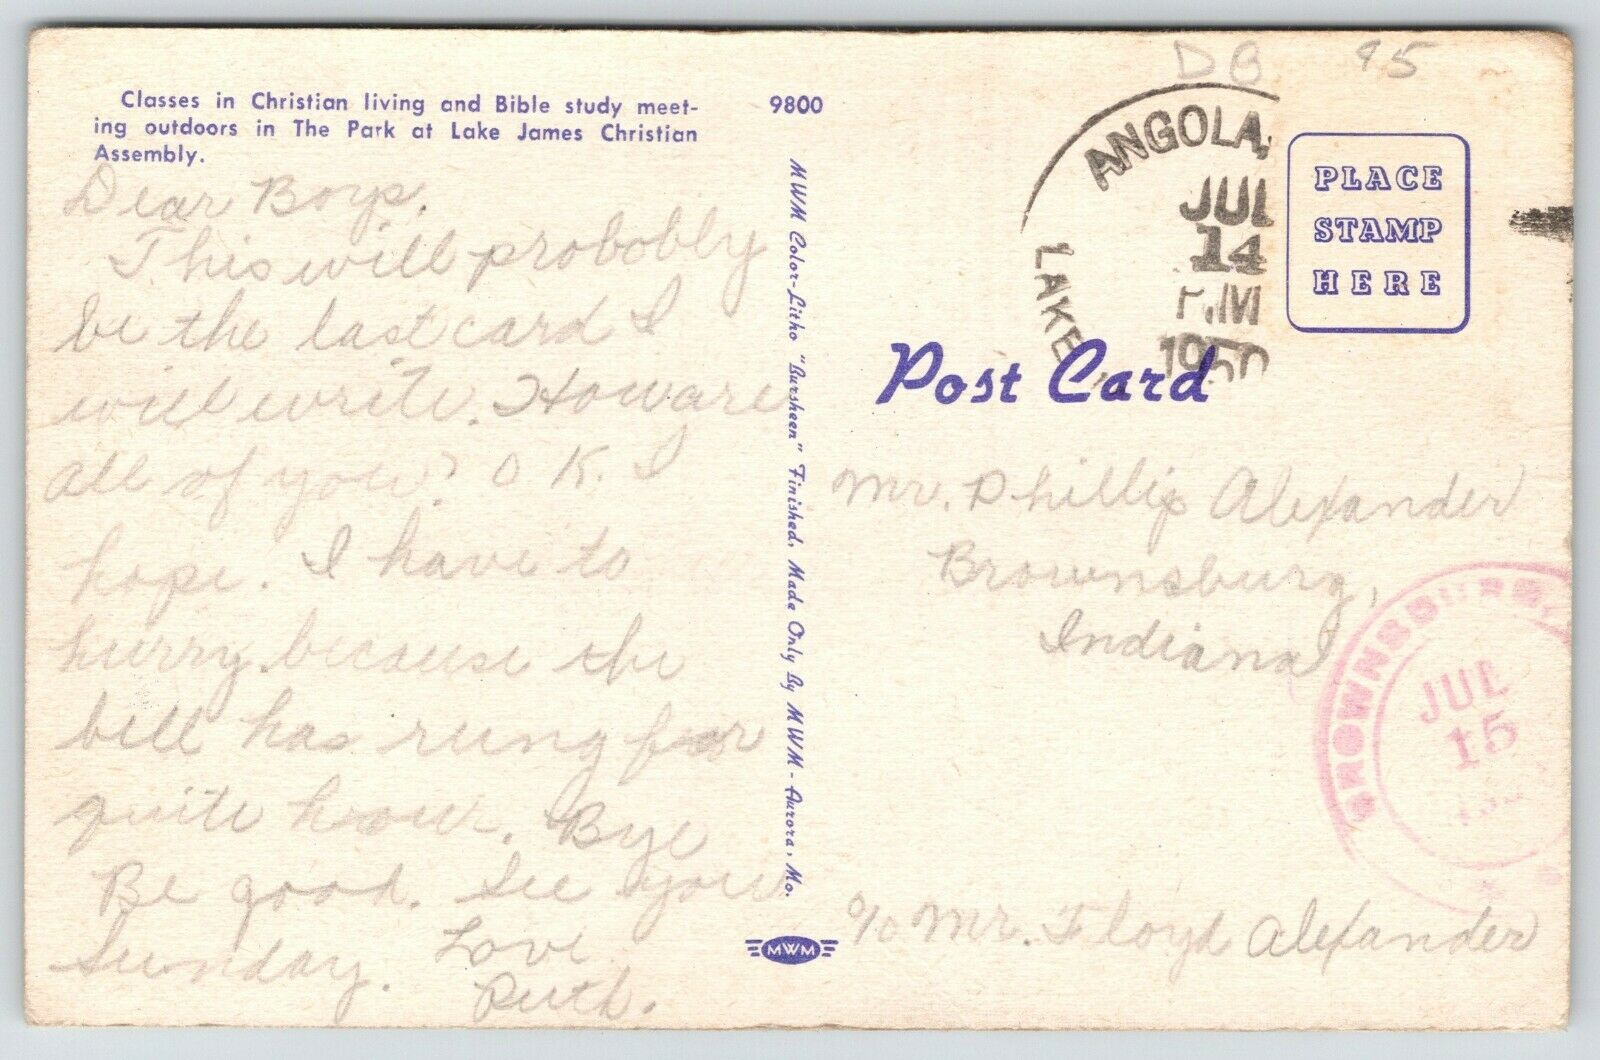 DB 95
Classes in Christian living and Bible study meet-
ing outdoors in The Park at Lake James Christian
Assembly.
9800
Dear Boys,
This will probobly
be the last card I
will write. How are
all of you? O K. I
hope. I have to
hurry because the
bell has rung for
quite hour. Bye
Be good. See you
Sunday. Love
Ruth.
MWM Color-Litho "Bursheen" Finished, Made Only By MWM - Aurora, Mo.
MWM
ANGOLA,
LAKE
JUL
14
PM
1950
PLACE
STAMP
HERE
Post Card
Mr. Phillip Alexander
Brownsburg,
Indiana
BROWNSBURG
JUL
15
c/o Mr. Floyd Alexander